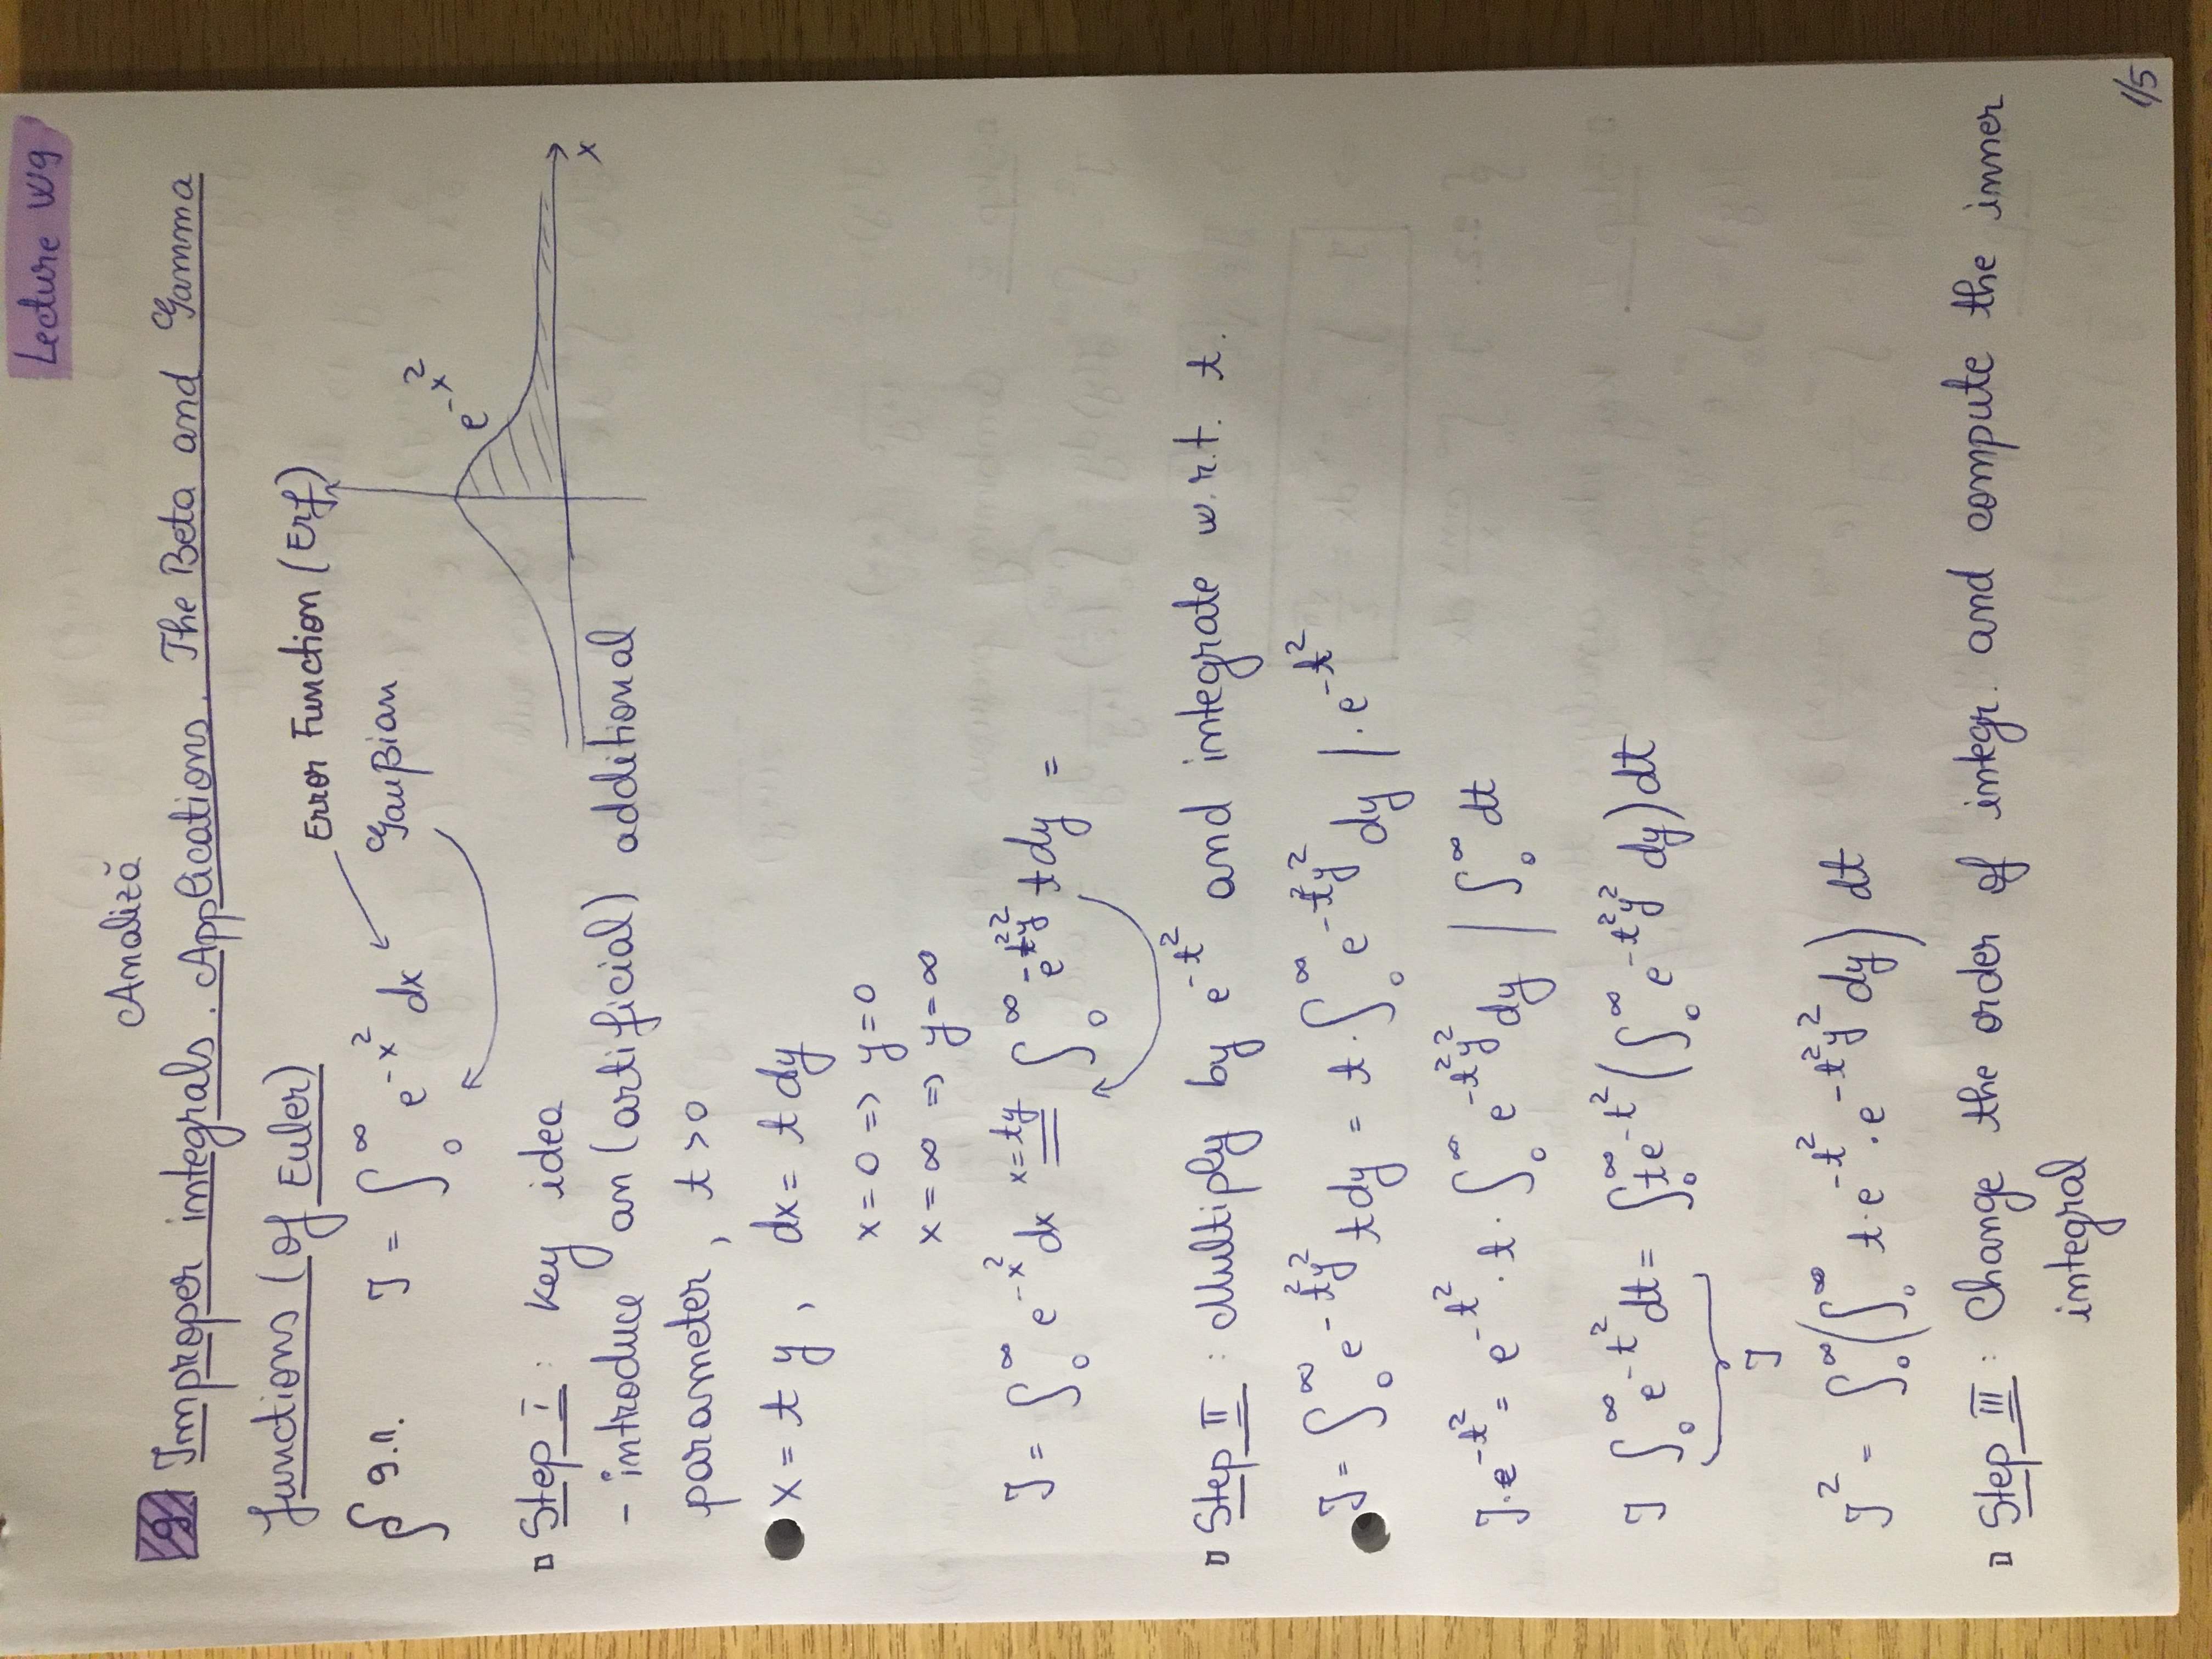 Lecture W9
Analiză
9 Improper integrals. Applications. The Beta and Gamma
Functions (of Euler)
Error Function (Erf)
§ 9.1. J = ∫₀^∞ e^{-x²} dx
Gaußian
e^{-x²}
x
Step I: key idea
- introduce an (artificial) additional
parameter, t > 0
x = t y, dx = t dy
x = 0 => y = 0
x = ∞ => y = ∞
J = ∫₀^∞ e^{-x²} dx =(x=ty) ∫₀^∞ e^{-t²y²} t dy =
Step II: Multiply by e^{-t²} and integrate w.r.t. t.
J = ∫₀^∞ e^{-t²y²} t dy = t · ∫₀^∞ e^{-t²y²} dy | · e^{-t²}
J · e^{-t²} = e^{-t²} · t · ∫₀^∞ e^{-t²y²} dy | ∫₀^∞ dt
J ∫₀^∞ e^{-t²} dt = ∫₀^∞ t e^{-t²} (∫₀^∞ e^{-t²y²} dy) dt
J
J² = ∫₀^∞ (∫₀^∞ t · e^{-t²} · e^{-t²y²} dy) dt
Step III: Change the order of integr. and compute the inner
integral
1/5